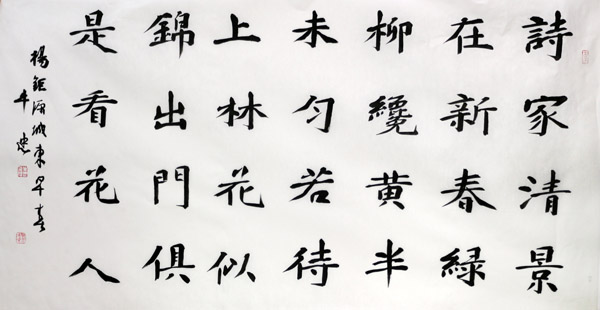 詩家清景
在新春綠
柳纔黄半
未勻若待
上林花似
錦出門俱
是看花人
楊巨源城東早春
牛忠